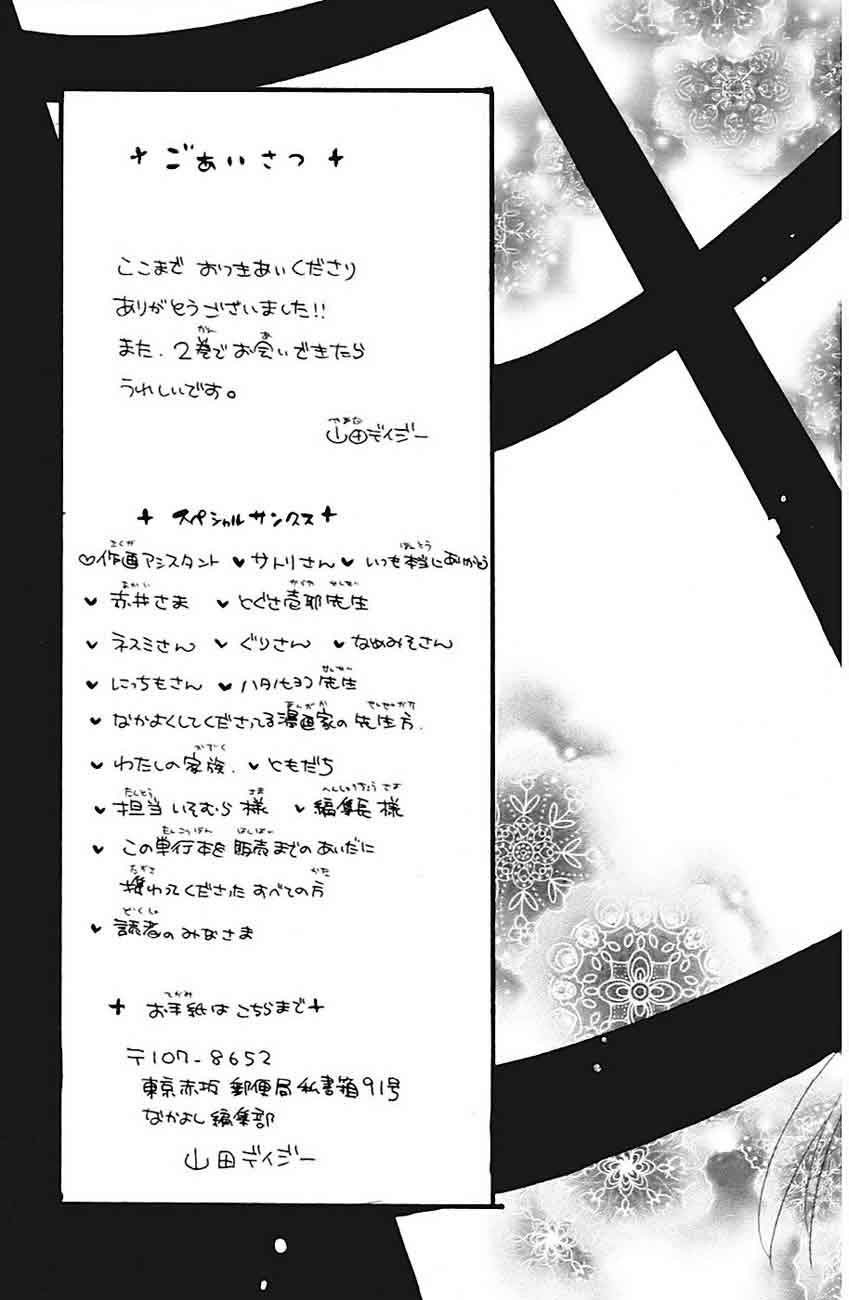 ごあいさつ
ここまで おつきあいくださり
ありがとうございました!!
また、2巻でお会いできたら
うれしいです。
山田デイジー
スペシャルサンクス
♡作画アシスタント ♥サトリさん ♥いつも本当にありがとう
♥赤井さま ♥とぐさ壱耶先生
♥ネスミさん ♥ぐりさん ♥なめみそさん
♥にっちもさん ♥ハタノヒヨコ先生
♥なかよくしてくださってる漫画家の先生方、
♥わたしの家族、♥ともだち
♥担当いそむら様 ♥編集長様
♥この単行本を販売までのあいだに
携わってくださったすべての方
♥読者のみなさま
お手紙はこちらまで
〒107-8652
東京赤坂郵便局私書箱91号
なかよし編集部
山田デイジー